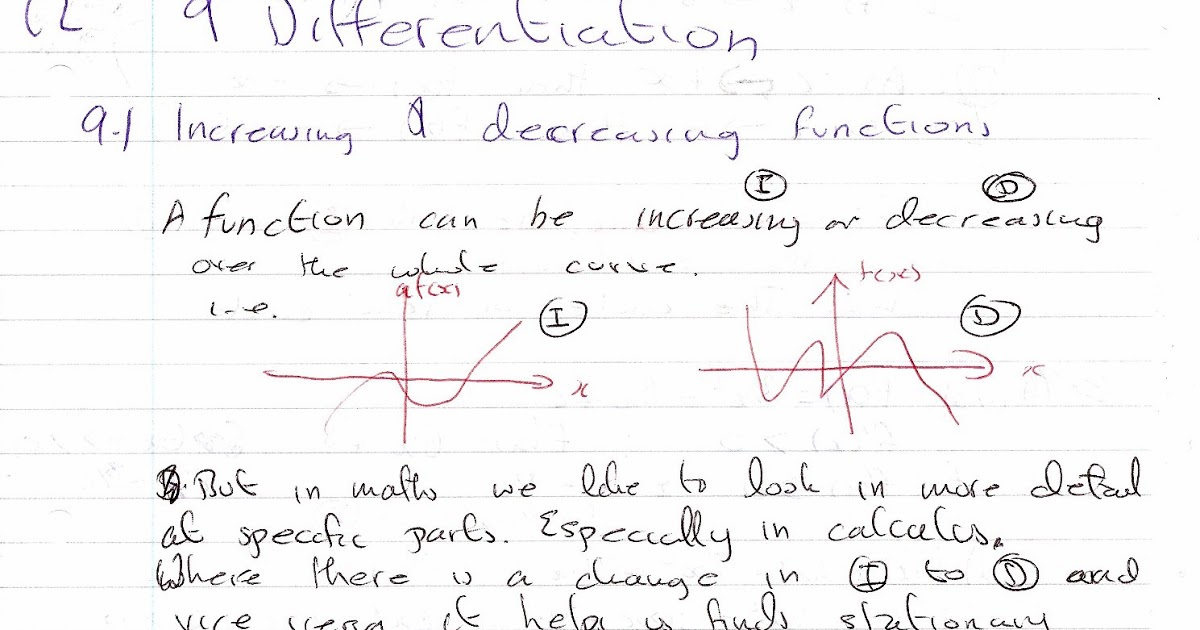 C2 9 Differentiation
9.1 Increasing & decreasing functions
I D
A function can be increasing or decreasing
over the whole curve.
i.e.
f(x) I x
f(x) D x
But in maths we like to look in more detail
at specific parts. Especially in calculus.
Where there is a change in I to D and
vice versa it helps us finds stationary